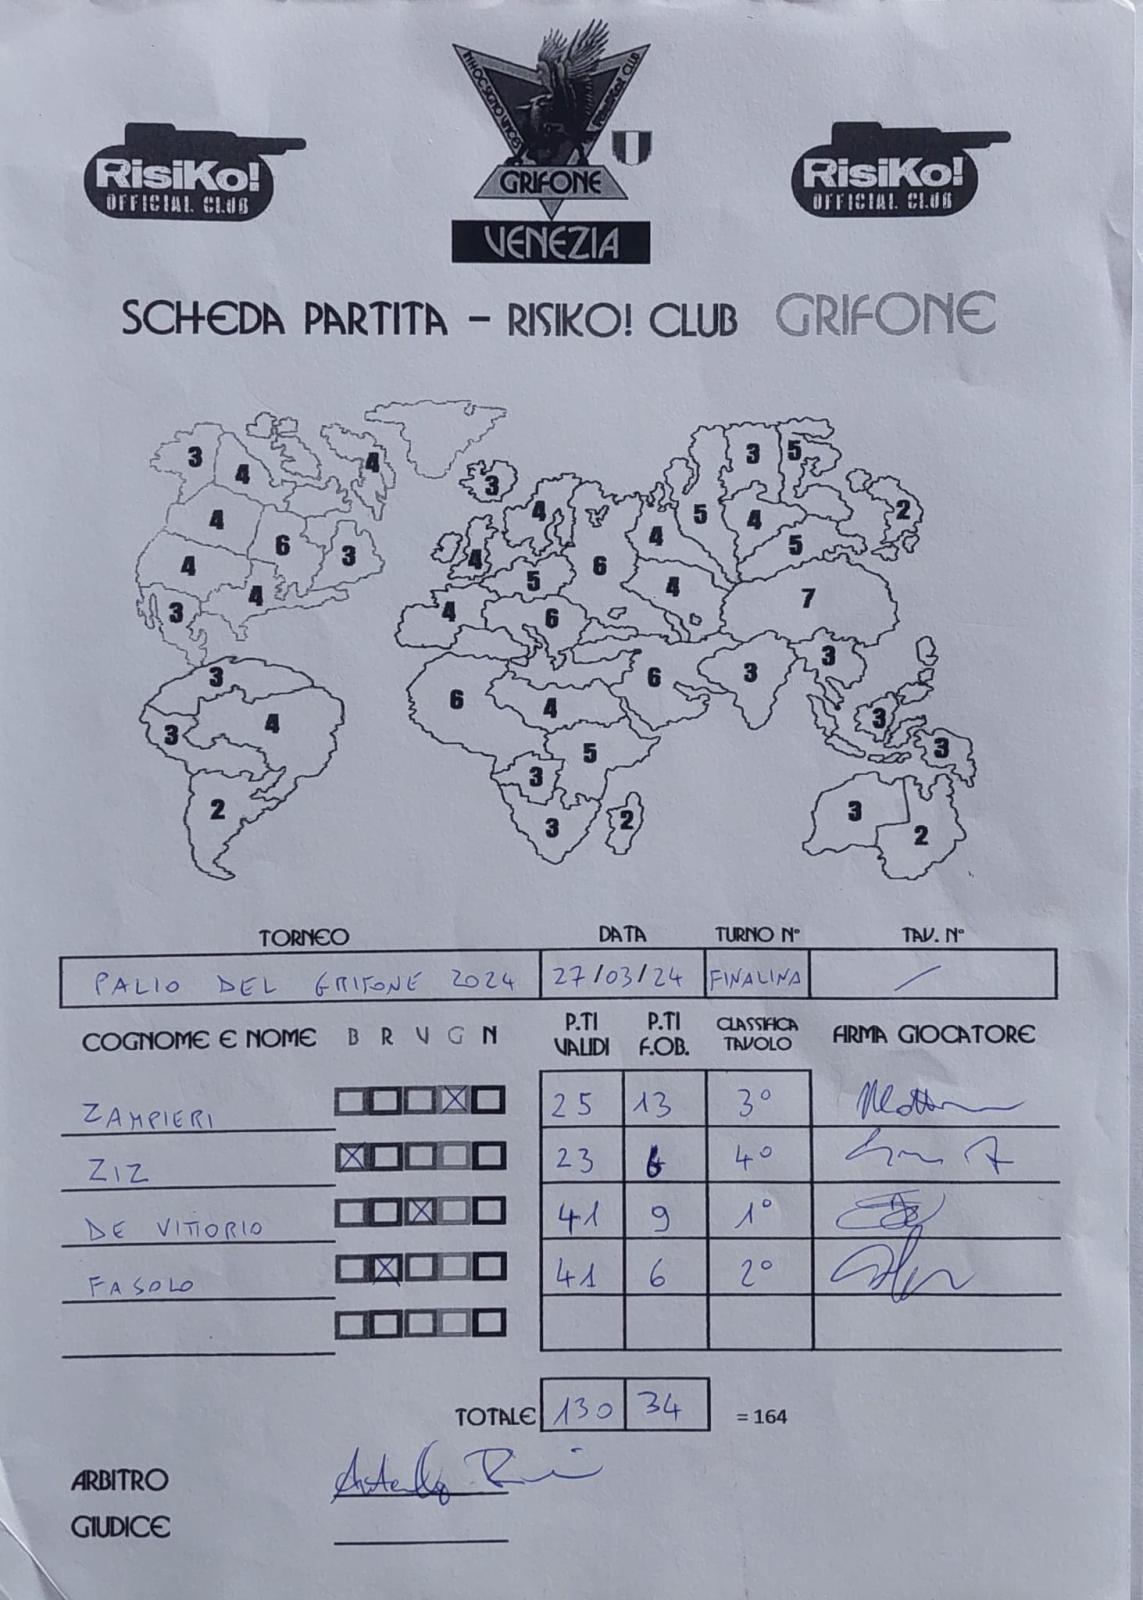 IN HOC SIGNO VINCES
RISIKO! CLUB
RisiKo!
OFFICIAL CLUB
GRIFONE
VENEZIA
RisiKo!
OFFICIAL CLUB
SCHEDA PARTITA – RISIKO! CLUB GRIFONE
3 4 4 3 3 5
4 6 3 4 4 5 4 2
4 4 4 5 6 4 5
3 4 6 4 7
3 6 4 6 3 3
3 4 5 3 3
2 3 3 2 3 2
TORNEO DATA TURNO N° TAV. N°
PALIO DEL GRIFONE 2024 27/03/24 FINALINA /
COGNOME E NOME B R V G N P.TI VALIDI P.TI F.OB. CLASSIFICA TAVOLO FIRMA GIOCATORE
ZAMPIERI 25 13 3°
ZIZ 23 6 4°
DE VITTORIO 41 9 1°
FASOLO 41 6 2°
TOTALE 130 34 = 164
ARBITRO
GIUDICE